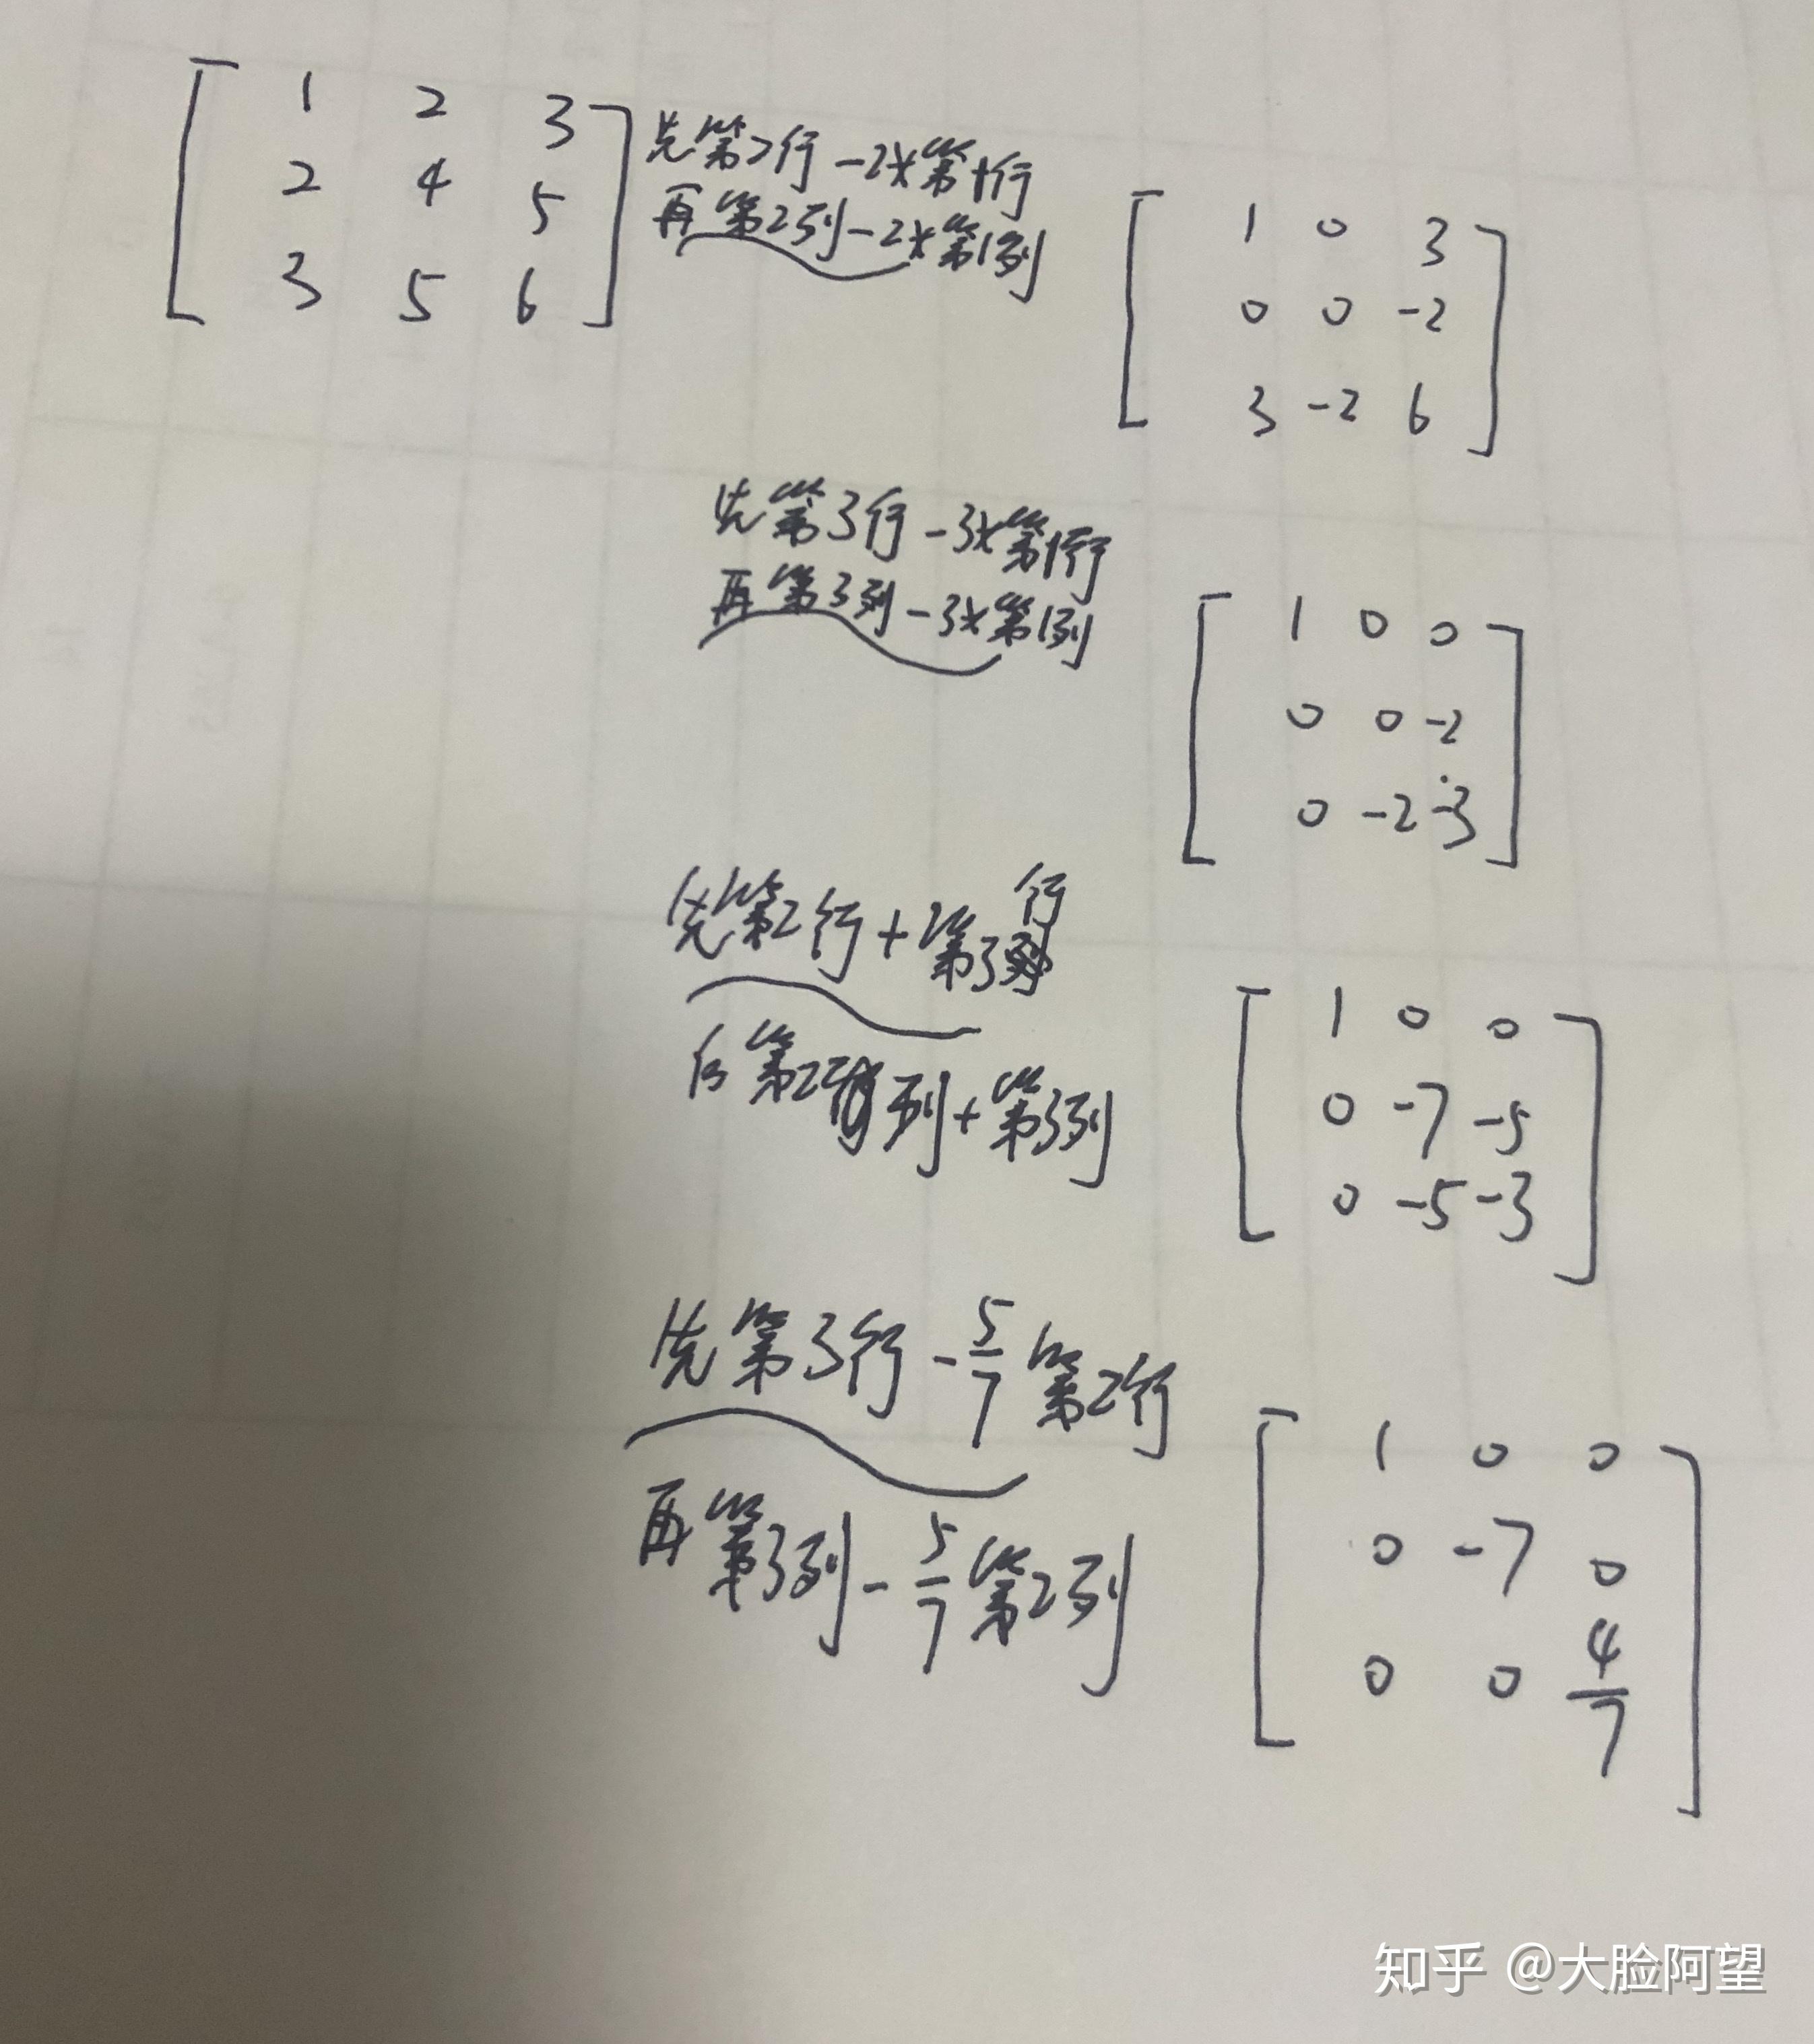 1 2 3
2 4 5
3 5 6
先第2行-2×第1行
再第2列-2×第1列
1 0 3
0 0 -2
3 -2 6
先第3行-3×第1行
再第3列-3×第1列
1 0 0
0 0 -2
0 -2 -3
先第2行+第3行
后第2列+第3列
1 0 0
0 -7 -5
0 -5 -3
先第3行-5/7第2行
再第3列-5/7第2列
1 0 0
0 -7 0
0 0 4/7
知乎 @大脸阿望